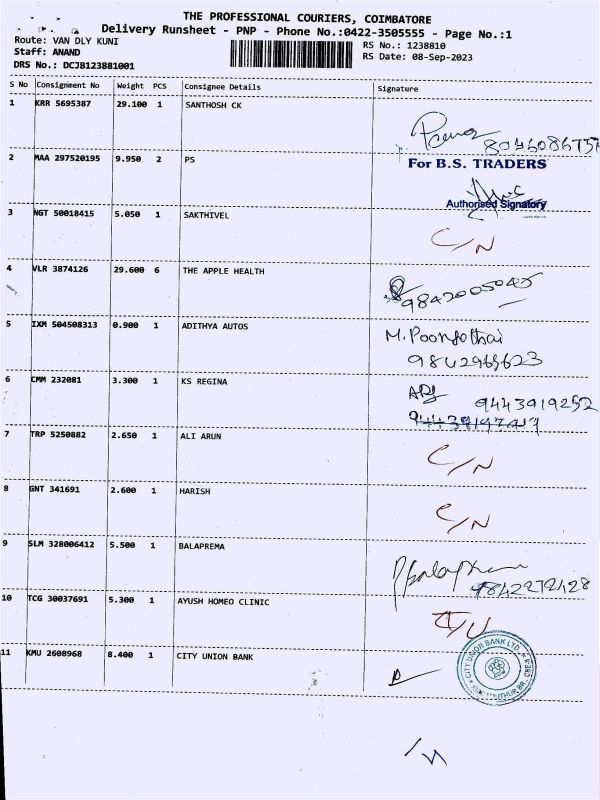 THE PROFESSIONAL COURIERS, COIMBATORE
Delivery Runsheet - PNP - Phone No.:0422-3505555 - Page No.:1
Route: VAN DLY KUNI
RS No.: 1238810
Staff: ANAND
RS Date: 08-Sep-2023
DRS No.: DCJB123881001
S No Consignment No Weight PCS Consignee Details Signature
1 KRR 5695387 29.100 1 SANTHOSH CK
2 MAA 297520195 9.950 2 PS
For B.S. TRADERS
Authorised Signatory
3 NGT 50018415 5.050 1 SAKTHIVEL
C/N
4 VLR 3874126 29.600 6 THE APPLE HEALTH
9842005045
5 IXM 504508313 0.900 1 ADITHYA AUTOS
M.Poongothai
9842969623
6 CMM 232081 3.300 1 KS REGINA
9443919252
7 TRP 5250882 2.650 1 ALI ARUN
C/N
8 GNT 341691 2.600 1 HARISH
C/N
9 SLM 328006412 5.500 1 BALAPREMA
9842272428
10 TCG 30037691 5.300 1 AYUSH HOMEO CLINIC
11 KMU 2608968 8.400 1 CITY UNION BANK
CITY UNION BANK LTD.